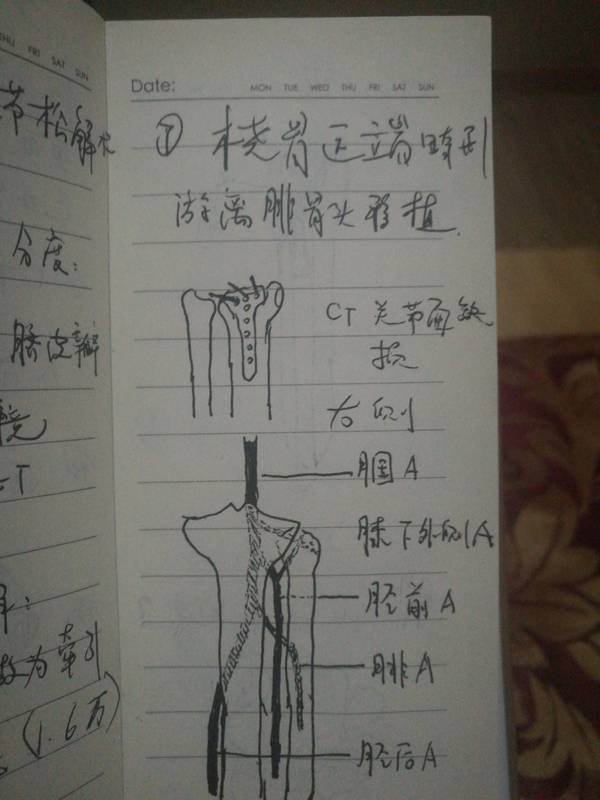 THU FRI SAT SUN
节松解术
分度：
脐皮瓣
为牵引
(1.6万)
Date: MON TUE WED THU FRI SAT SUN
桡骨远端畸形
游离腓骨头移植.
CT 关节面缺
损
右侧
腘A
膝下外侧A
胫前A
腓A
胫后A